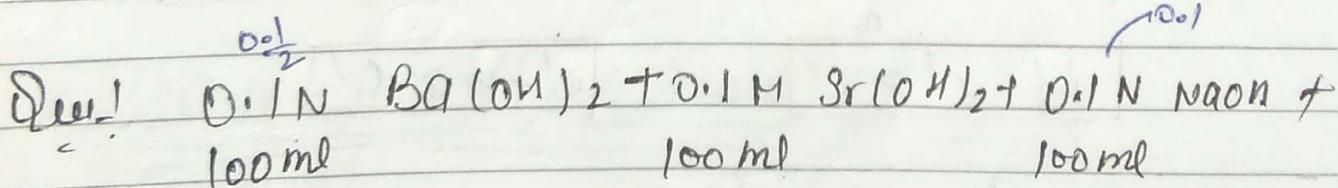 0.1/2 0.1
Que! 0.1N Ba(OH)2 + 0.1M Sr(OH)2 + 0.1N NaOH +
100ml 100ml 100ml